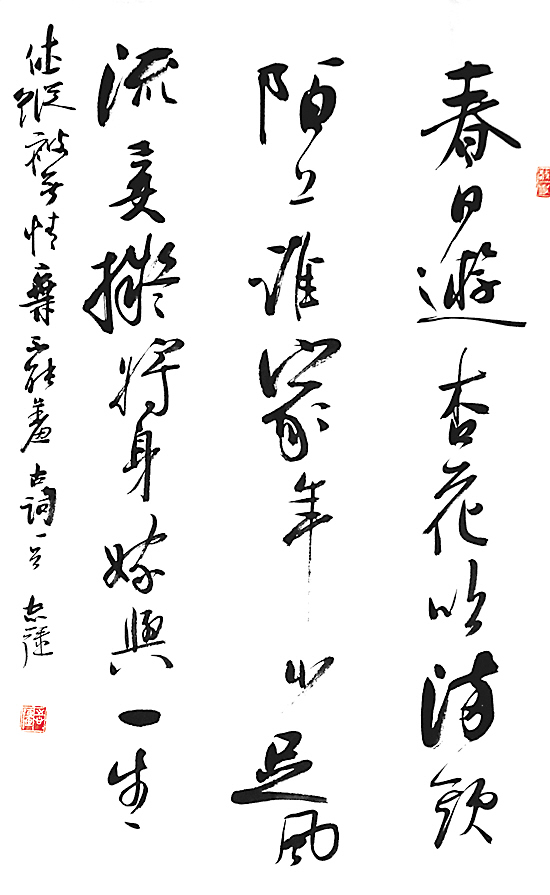 春日遊杏花吹滿頭
陌上誰家年少足風
流妾擬將身嫁與一生
休縱被無情棄不能羞古詞一首